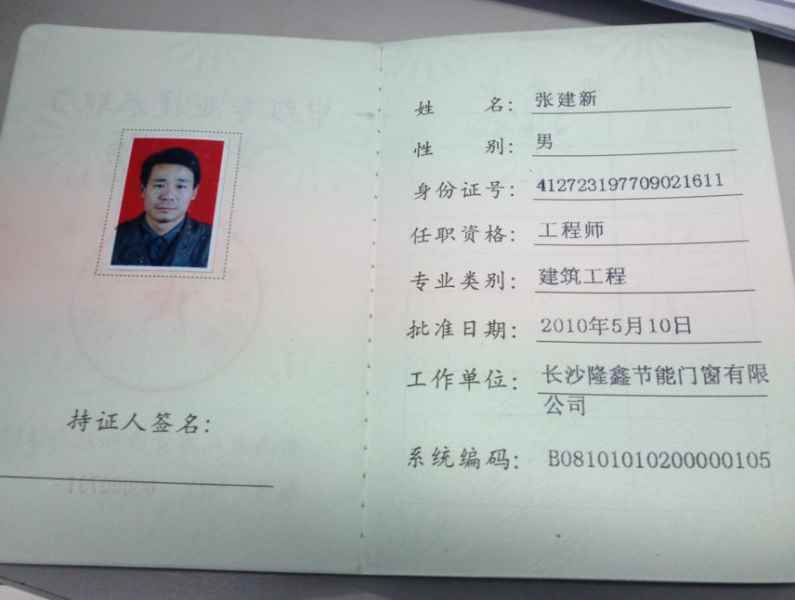 持证人签名：
姓 名： 张建新
性 别： 男
身份证号： 412723197709021611
任职资格： 工程师
专业类别： 建筑工程
批准日期： 2010年5月10日
工作单位： 长沙隆鑫节能门窗有限
公司
系统编码： B08101010200000105